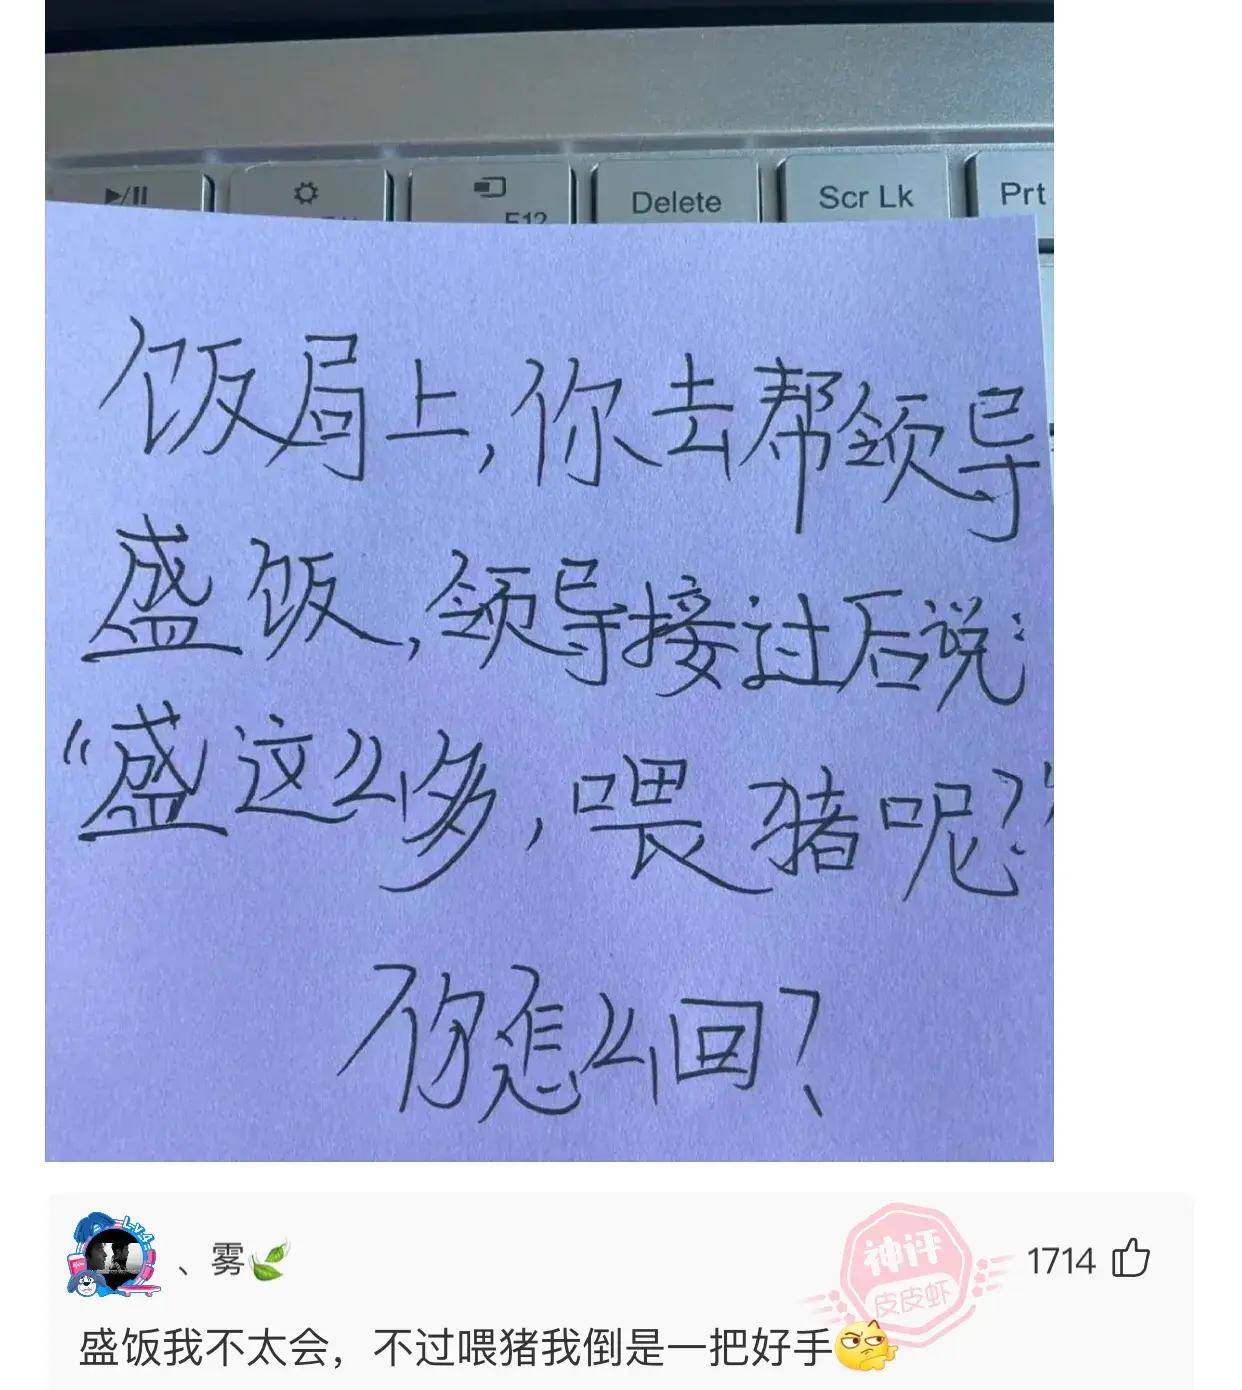 Delete
Scr Lk
Prt
F12
饭局上,你去帮领导
盛饭,领导接过后说:
“盛这么多,喂猪呢?”
你怎么回?
Lv.4
、雾
神评
皮皮虾
1714
盛饭我不太会，不过喂猪我倒是一把好手